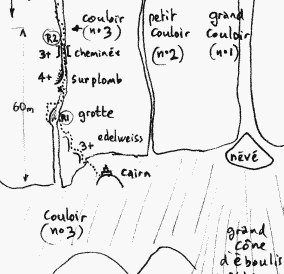 couloir
(no3)
petit
couloir
(no2)
grand
couloir
(no1)
R2
3+
cheminée
4+
surplomb
60m
R1
grotte
edelweiss
3+
cairn
névé
Couloir
(no3)
grand
cône
d'éboulis